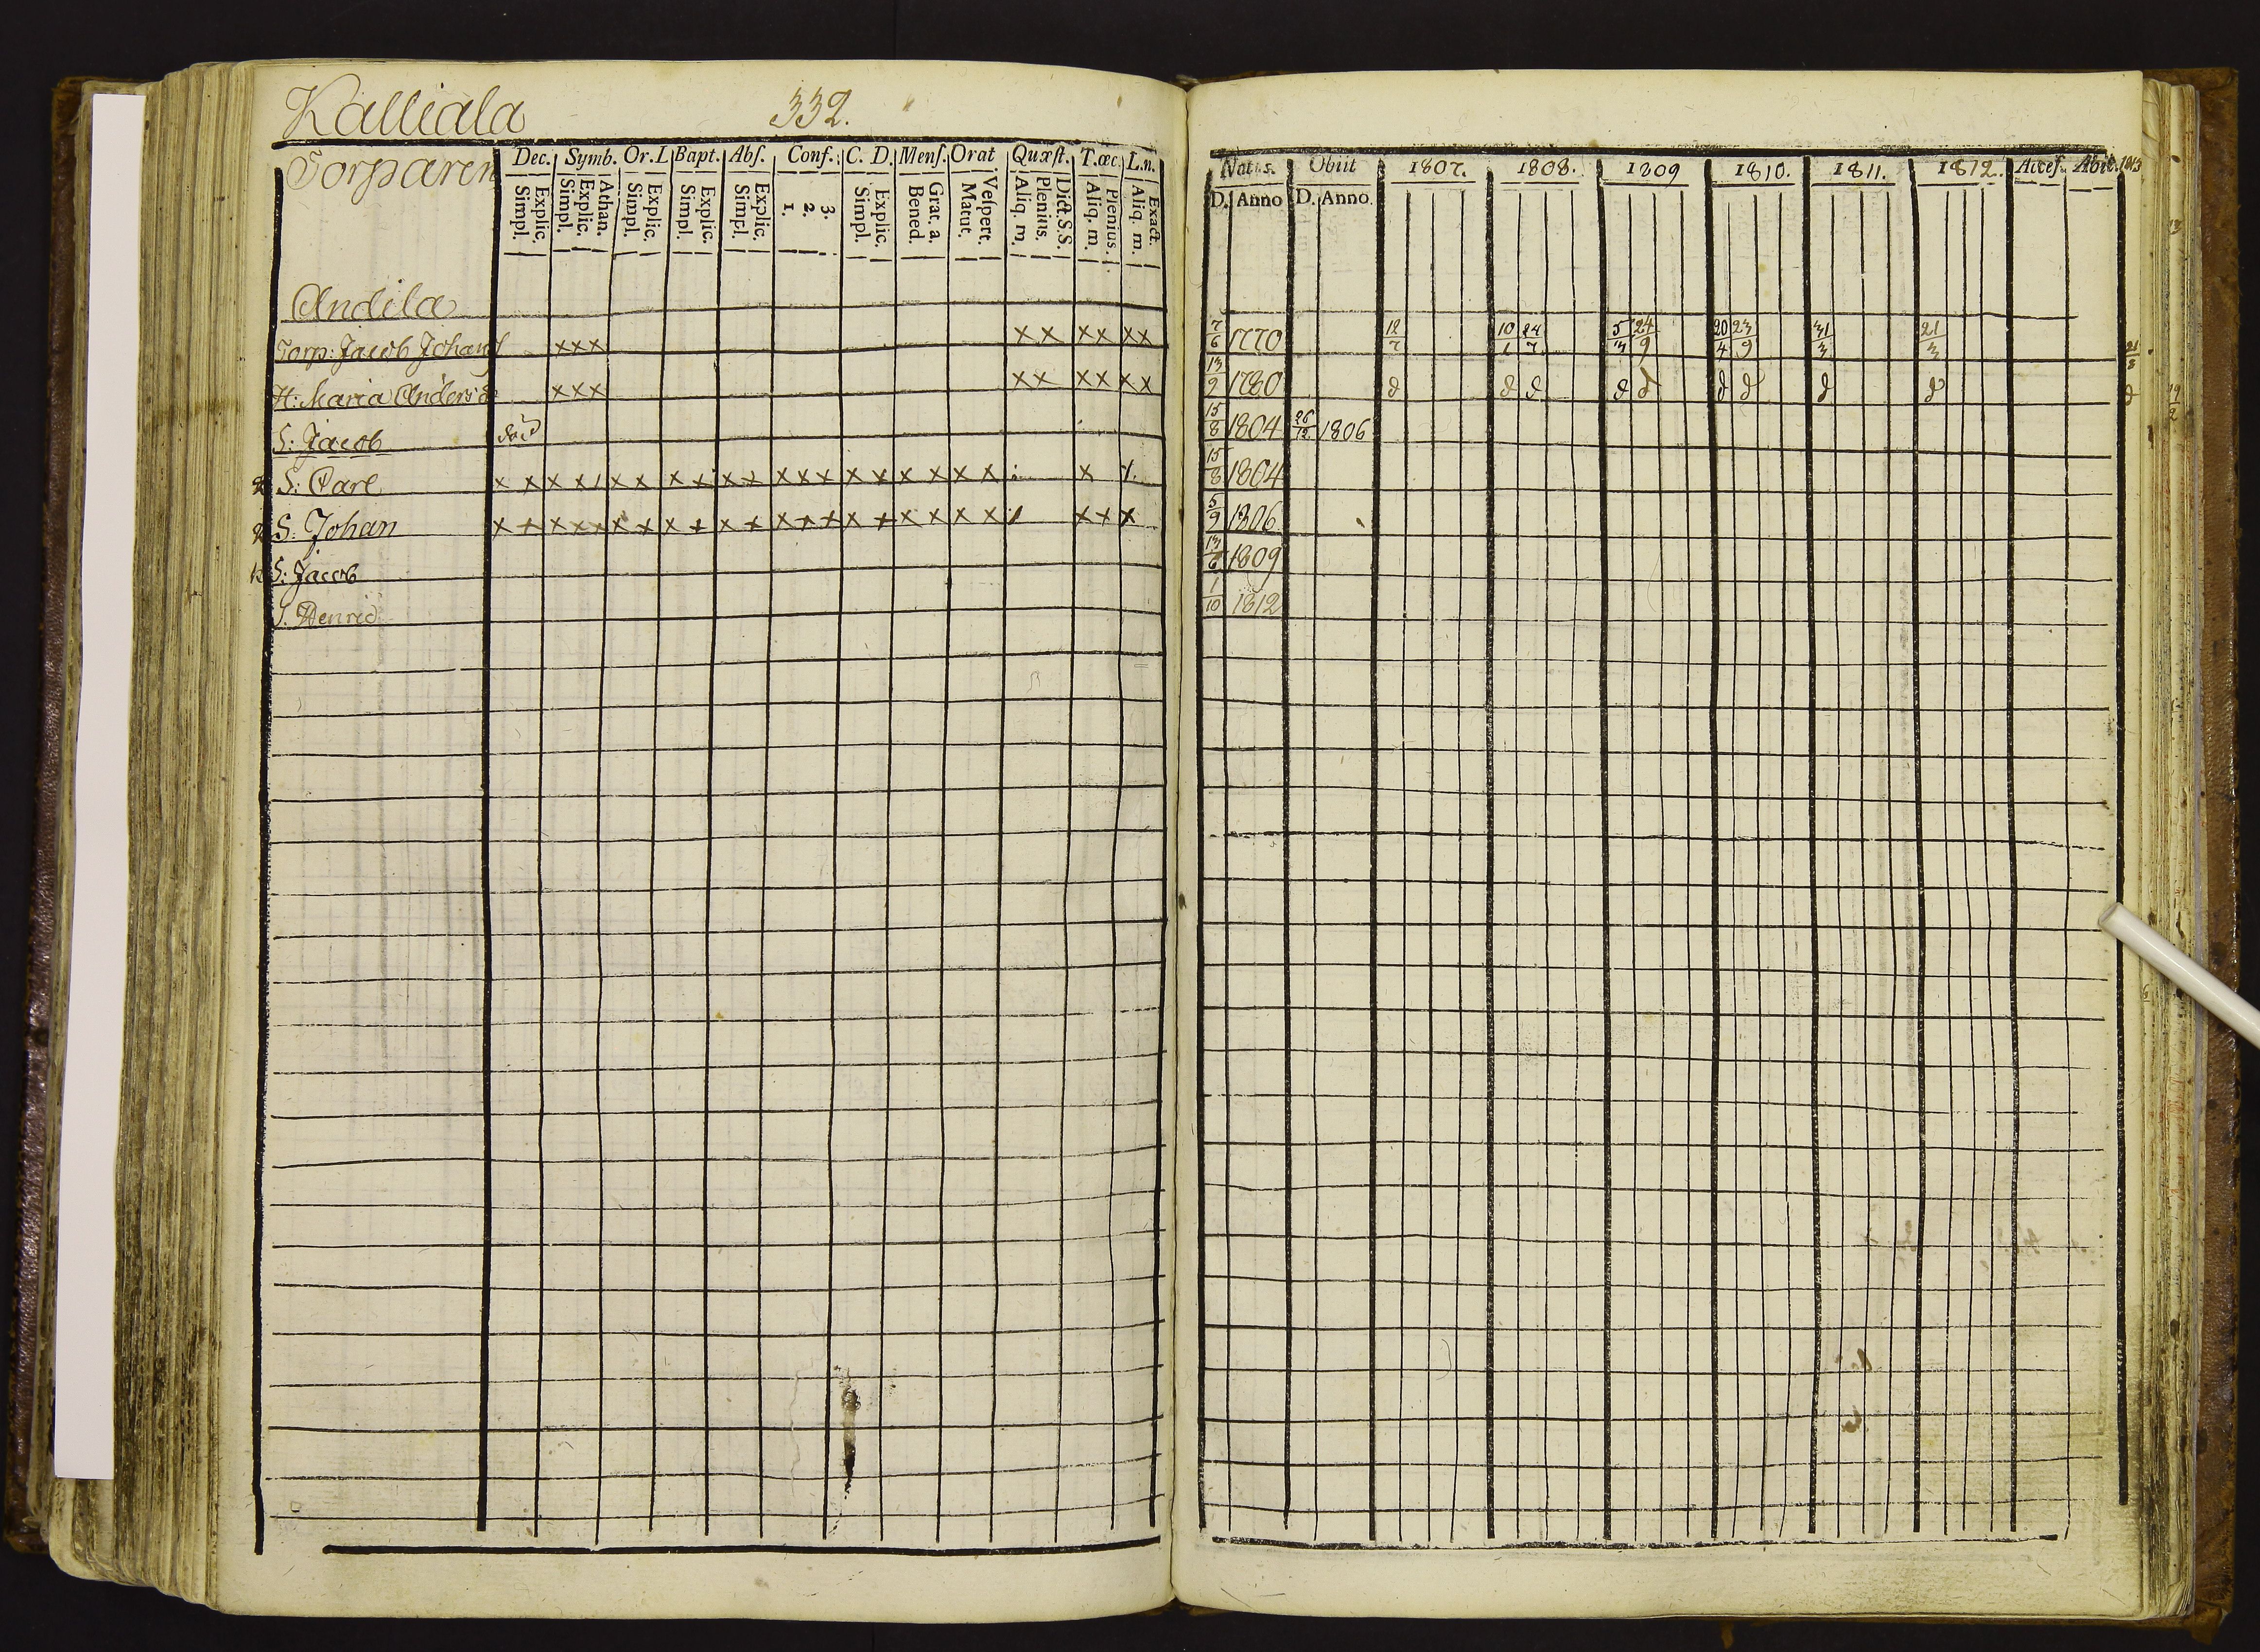 Kalliala 332.
Torparen Dec. Symb. Or. L Bapt. Abſ. Conf. C. D. Menſ. Orat Quæſt. T.œc. L.n. Natus. Obiit 1807. 1808. 1809 1810. 1811. 1812. Acceſ. Abiit. 1813
Simpl. Explic. Simpl. Explic. Athan. Simpl. Explic. Simpl. Explic. Simpl. Explic. 1. 2. 3. Simpl. Explic. Bened. Grat. a. Matut. Veſpert. Aliq. m. Plenius. Dict. S.S. Aliq. m. Plenius. Aliq. m. Exact. D. Anno D. Anno
Andila
Torp: Jacob Johans xxx xx xx xx 7/6 1770 12/7 10/1 24/7 5/3 24/9 20/4 23/9 31/3 21/3 21/3
H: Maria Andersd xxx xx xx xx 13/2 1780 d d d d d d d d d d 19/2
S: Jacob död 15/8 1804 26/12 1806
S: Carl x x x x / x x x x x x x x x x x x x x x x 15/8 1804
S: Johan x x x x x x x x x x x x x x x x x x x x / x x x 5/9 1806
S: Jacob 13/6 1809
S. Henric 1/10 1812